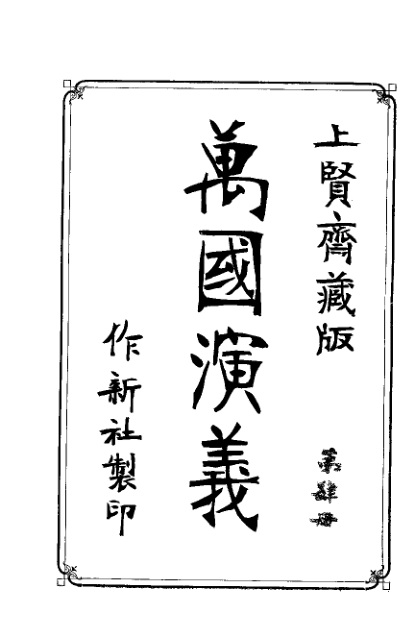 上賢齋藏版
第肆冊
萬國演義
作新社製印